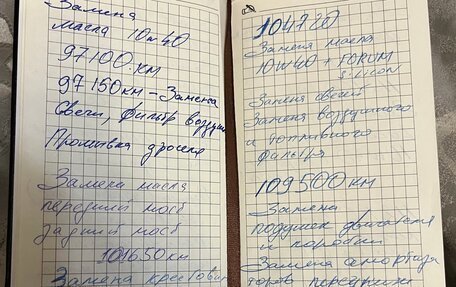 Замена
масла 10w40
97100 км
97150км – Замена
Свечи, фильтр воздуш
Промывка дросел
Замена масла
передний мост
задний мост
101650км
Замена крестовин
104720
Замена масла
10W40 + FORUM
SILICON
Замена свечей
Замена воздушного
и топливного
фильтра
109500км
Замена
подушек двигателя
и коробки
Замена амортиза
торов передних